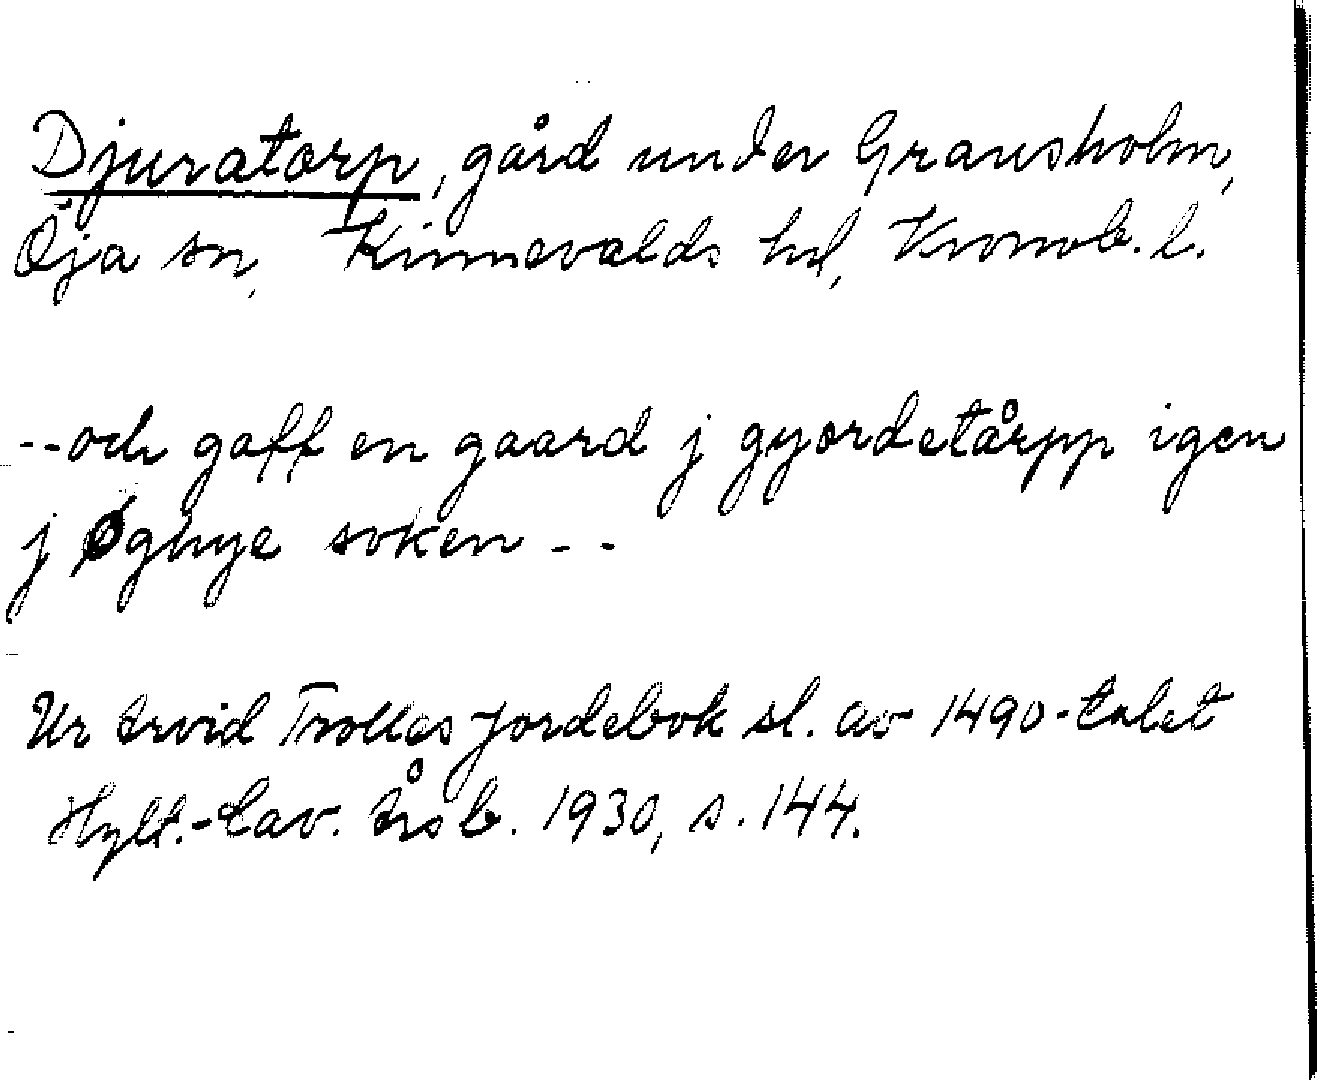 Djuratorp, gård under Gransholm,
Öja sn, Kinnevalds hd, Kronob. l.
--och gaff en gaard j gyordetårpp igen
j Øghye soken --
Ur Arvid Trolles jordebok sl. av 1490-talet
Hylt.-Cav. Årsb. 1930, s. 144.